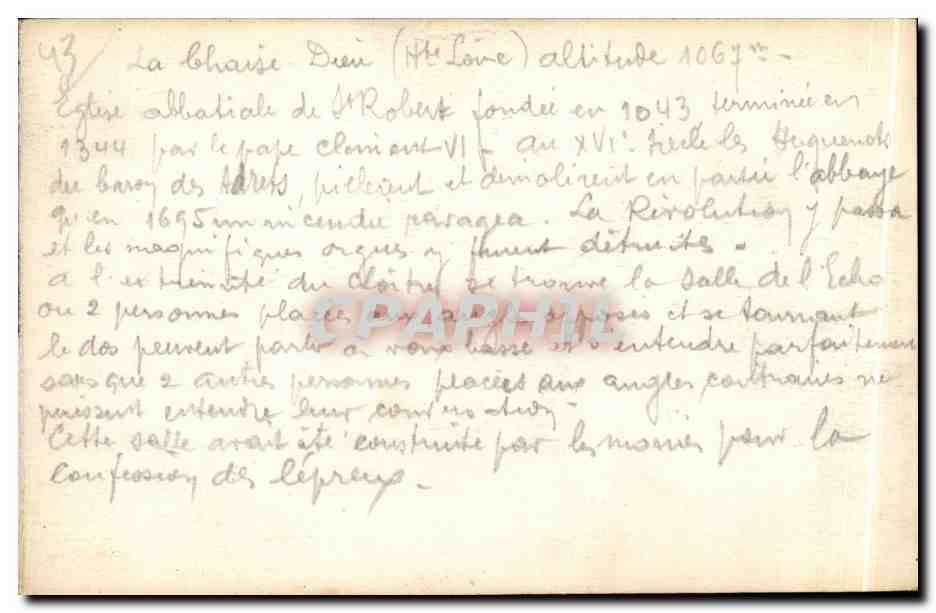 43
La Chaise-Dieu (Hte Loire) altitude 1067m -
Eglise abbatiale de St Robert fondée en 1043 terminée en
1344 par le pape Clément VI - au XVIe siècle les Huguenots
du baron des Adrets, pillèrent et démolirent en partie l'abbaye
qu'en 1695 un incendie ravagea. La Révolution y passa
et les magnifiques orgues y furent détruites.
A l'extrémité du cloître se trouve la salle de l'Echo
ou 2 personnes placées aux angles opposés et se tournant
le dos peuvent parler a voix basse et s'entendre parfaitement
sans que 2 autres personnes placées aux angles contraires ne
puissent entendre leur conversation -
Cette salle avait été construite par les moines pour la
confession des lépreux. -
CPAPHIL